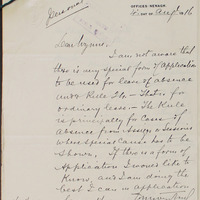 OFFICES · NENAGH
Personal
Dear Wynne,
I am not aware that
there is any special form of Application
to be used for leave of absence
under Rule
ordinary leave. The Rule
is principally for Case of
Absence from Assizes or Sessions
where Special Cause has to be
Shown. If there is a form of
Application I would like to
Know, and I am doing the
best I can in application